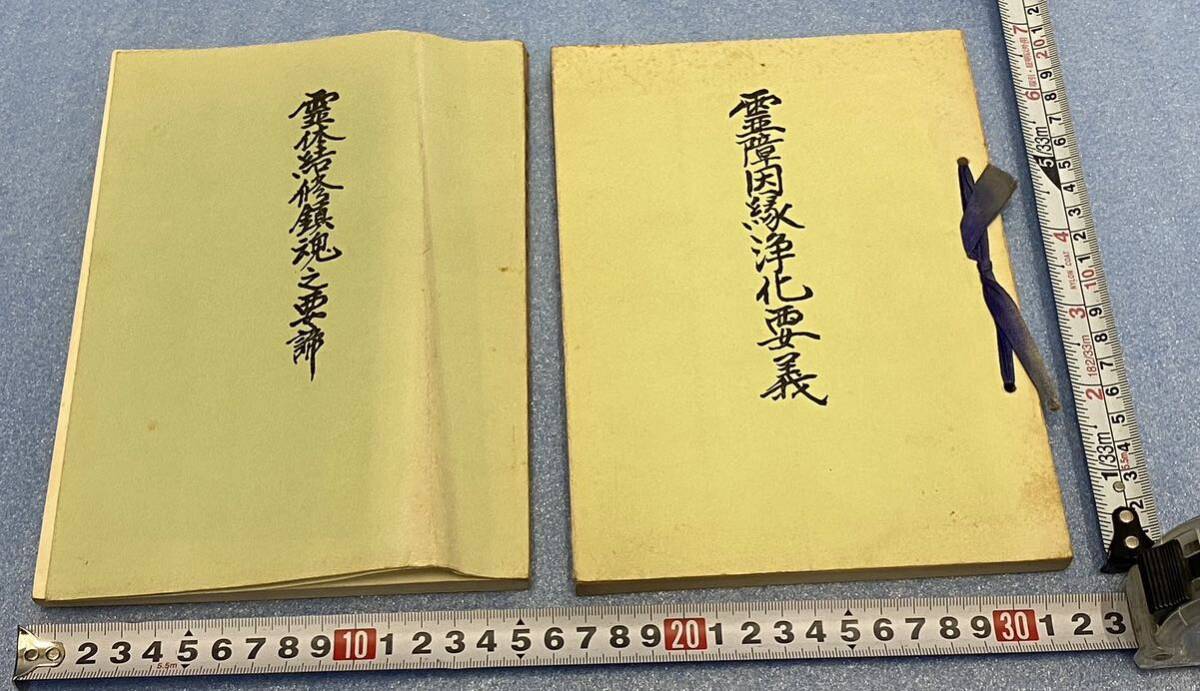 霊体結修鎮魂之要諦
霊障因縁浄化要義
2 3 4 5 6 7 8 9 10 1 2 3 4 5 6 7 8 9 20 1 2 3 4 5 6 7 8 9 30 1 2 3
5.5m
NYLON COAT
182/33m
5/33m
1/33m
5.5m